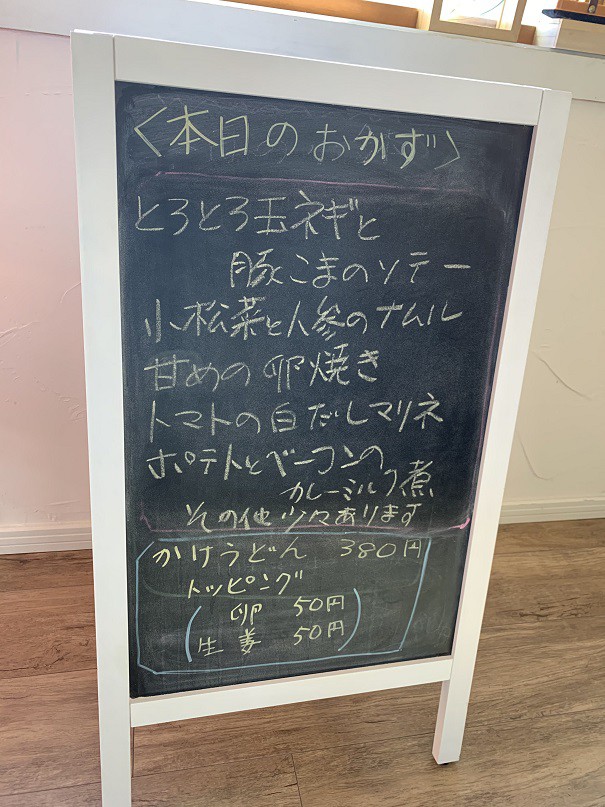 〈本日のおかず〉
とろとろ玉ネギと
豚こまのソテー
小松菜と人参のナムル
甘めの卵焼き
トマトの白だしマリネ
ポテトとベーコンの
カレーミルク煮
その他少々あります
かけうどん 380円
トッピング
(卵 50円
生姜 50円)